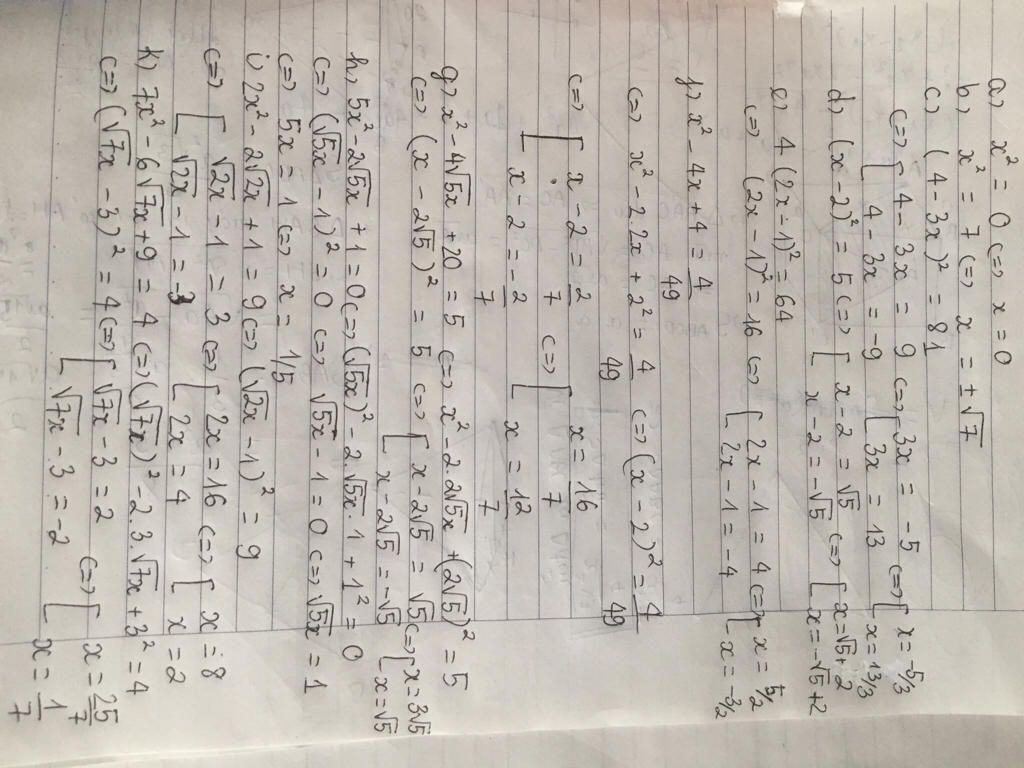 a) x² = 0 <=> x = 0
b) x² = 7 <=> x = ±√7
c) (4 - 3x)² = 81
<=> [ 4 - 3x = 9 <=> [ 3x = -5 <=> [ x = -5/3
4 - 3x = -9 3x = 13 x = 13/3
d) (x - 2)² = 5 <=> [ x - 2 = √5 <=> [ x = √5 + 2
x - 2 = -√5 x = -√5 + 2
e) 4 (2x - 1)² = 64
<=> (2x - 1)² = 16 <=> [ 2x - 1 = 4 <=> [ x = 5/2
2x - 1 = -4 x = -3/2
f) x² - 4x + 4 = 4/49
<=> x² - 2.2x + 2² = 4/49 <=> (x - 2)² = 4/49
<=> [ x - 2 = 2/7 <=> [ x = 16/7
x - 2 = -2/7 x = 12/7
g) x² - 4√5x + 20 = 5 <=> x² - 2.2√5x + (2√5)² = 5
<=> (x - 2√5)² = 5 <=> [ x - 2√5 = √5 <=> [ x = 3√5
x - 2√5 = -√5 x = √5
h) 5x² - 2√5x + 1 = 0 <=> (√5x)² - 2.√5x.1 + 1² = 0
<=> (√5x - 1)² = 0 <=> √5x - 1 = 0 <=> √5x = 1
<=> 5x = 1 <=> x = 1/5
i) 2x² - 2√2x + 1 = 9 <=> (√2x - 1)² = 9
<=> [ √2x - 1 = 3 <=> [ 2x = 16 <=> [ x = 8
√2x - 1 = -3 2x = 4 x = 2
k) 7x² - 6√7x + 9 = 4 <=> (√7x)² - 2.3.√7x + 3² = 4
<=> (√7x - 3)² = 4 <=> [ √7x - 3 = 2 <=> [ x = 25/7
√7x - 3 = -2 x = 1/7